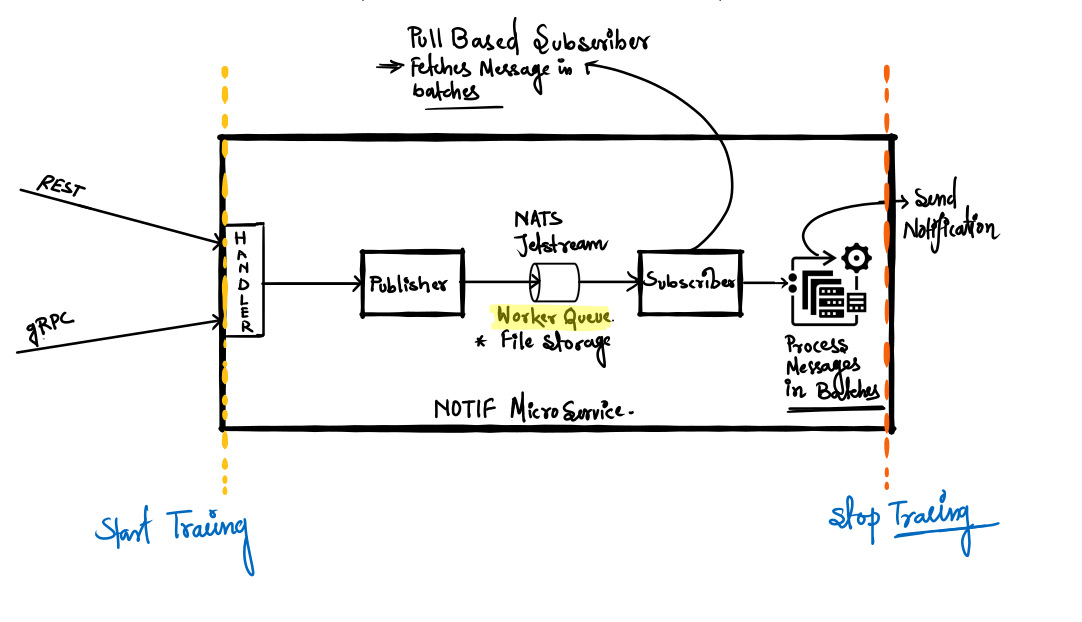 Pull Based Subscriber
→ Fetches Message in
batches
REST
gRPC
HANDLER
Publisher
NATS
Jetstream
Worker Queue.
* File Storage
Subscriber
Send
Notification
Process
Messages
in Batches
NOTIF MicroService.
Start Tracing
Stop Tracing